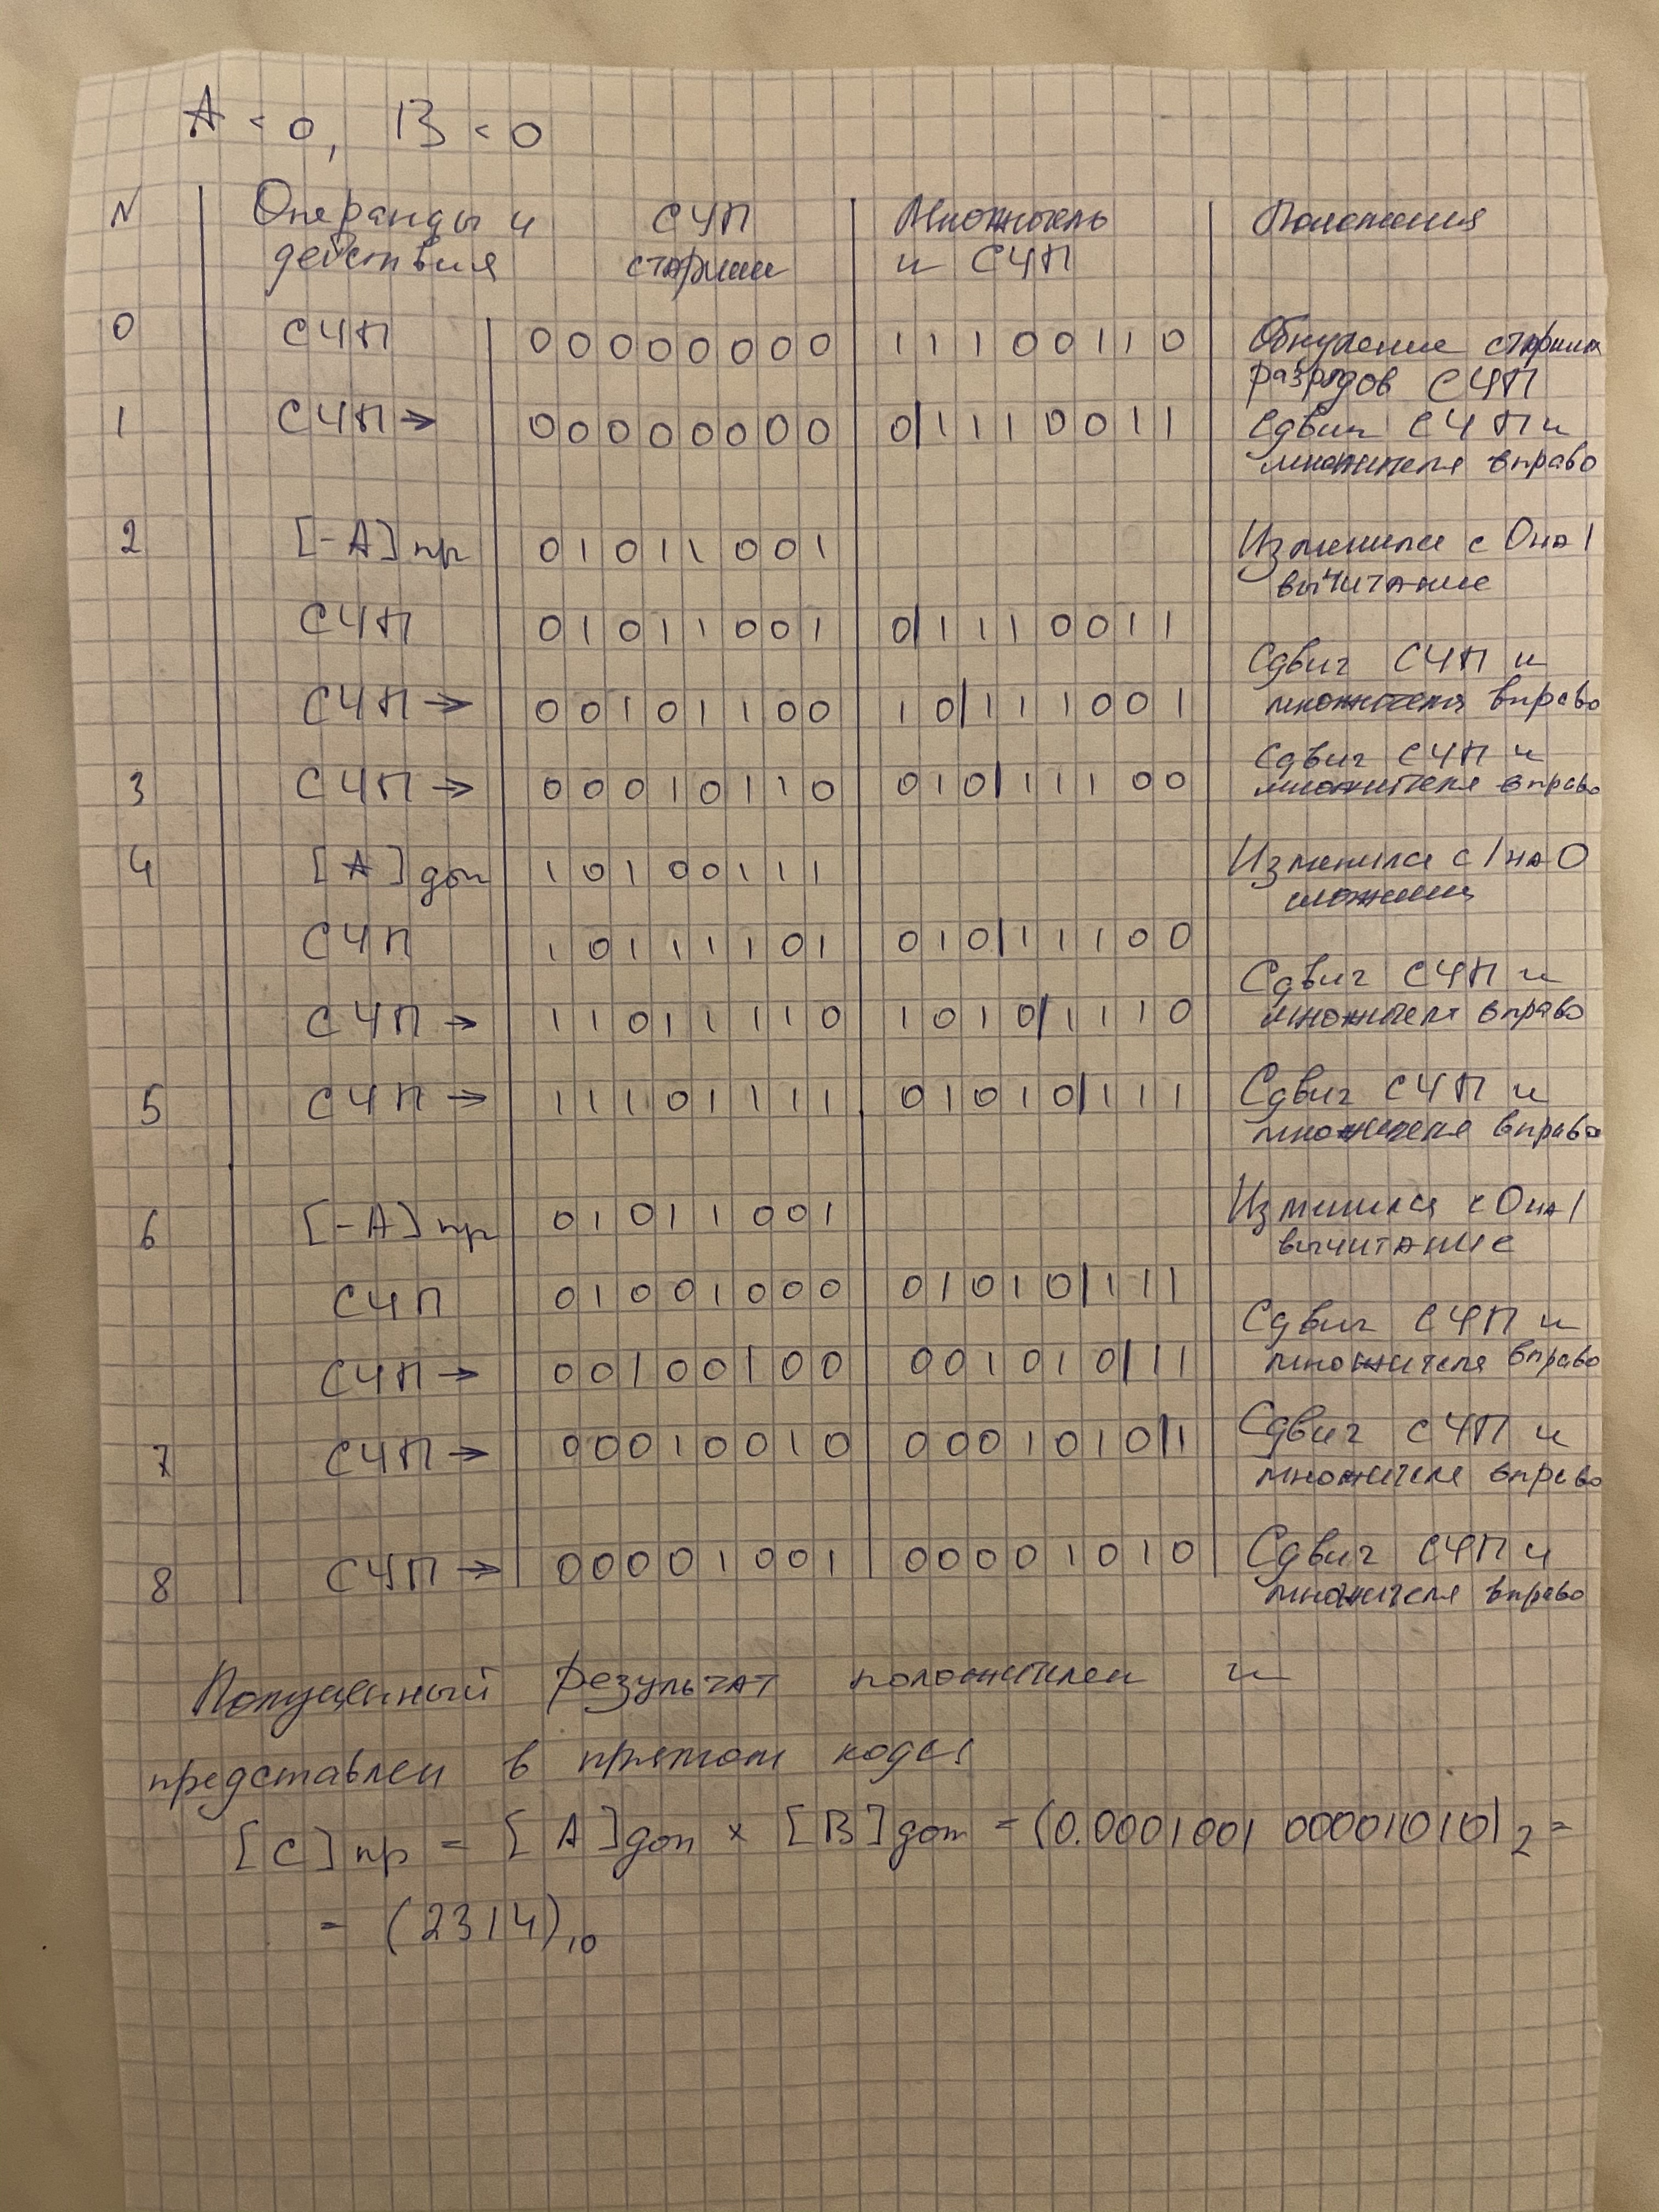 A < 0, B < 0
N Операнды и действия СЧП старшие Множитель и СЧП Пояснения
0 СЧП 00000000 11100110 Обнуление старших разрядов СЧП
1 СЧП → 00000000 0|1110011 Сдвиг СЧП и множителя вправо
2 [-A]пр 01011001 Изменился с 0 на 1 вычитание
СЧП 01011001 0|1110011
СЧП → 00101100 10|111001 Сдвиг СЧП и множителя вправо
3 СЧП → 00010110 010|11100 Сдвиг СЧП и множителя вправо
4 [A]доп 10100111 Изменился с 1 на 0 сложение
СЧП 10111101 010|11100
СЧП → 11011110 1010|1110 Сдвиг СЧП и множителя вправо
5 СЧП → 11101111 01010|111 Сдвиг СЧП и множителя вправо
6 [-A]пр 01011001 Изменился с 0 на 1 вычитание
СЧП 01001000 01010|111
СЧП → 00100100 001010|11 Сдвиг СЧП и множителя вправо
7 СЧП → 00010010 0001010|1 Сдвиг СЧП и множителя вправо
8 СЧП → 00001001 00001010 Сдвиг СЧП и множителя вправо
Полученный результат положителен и
представлен в прямом коде:
[C]пр = [A]доп × [B]доп = (0.0001001 00001010)2 =
= (2314)10